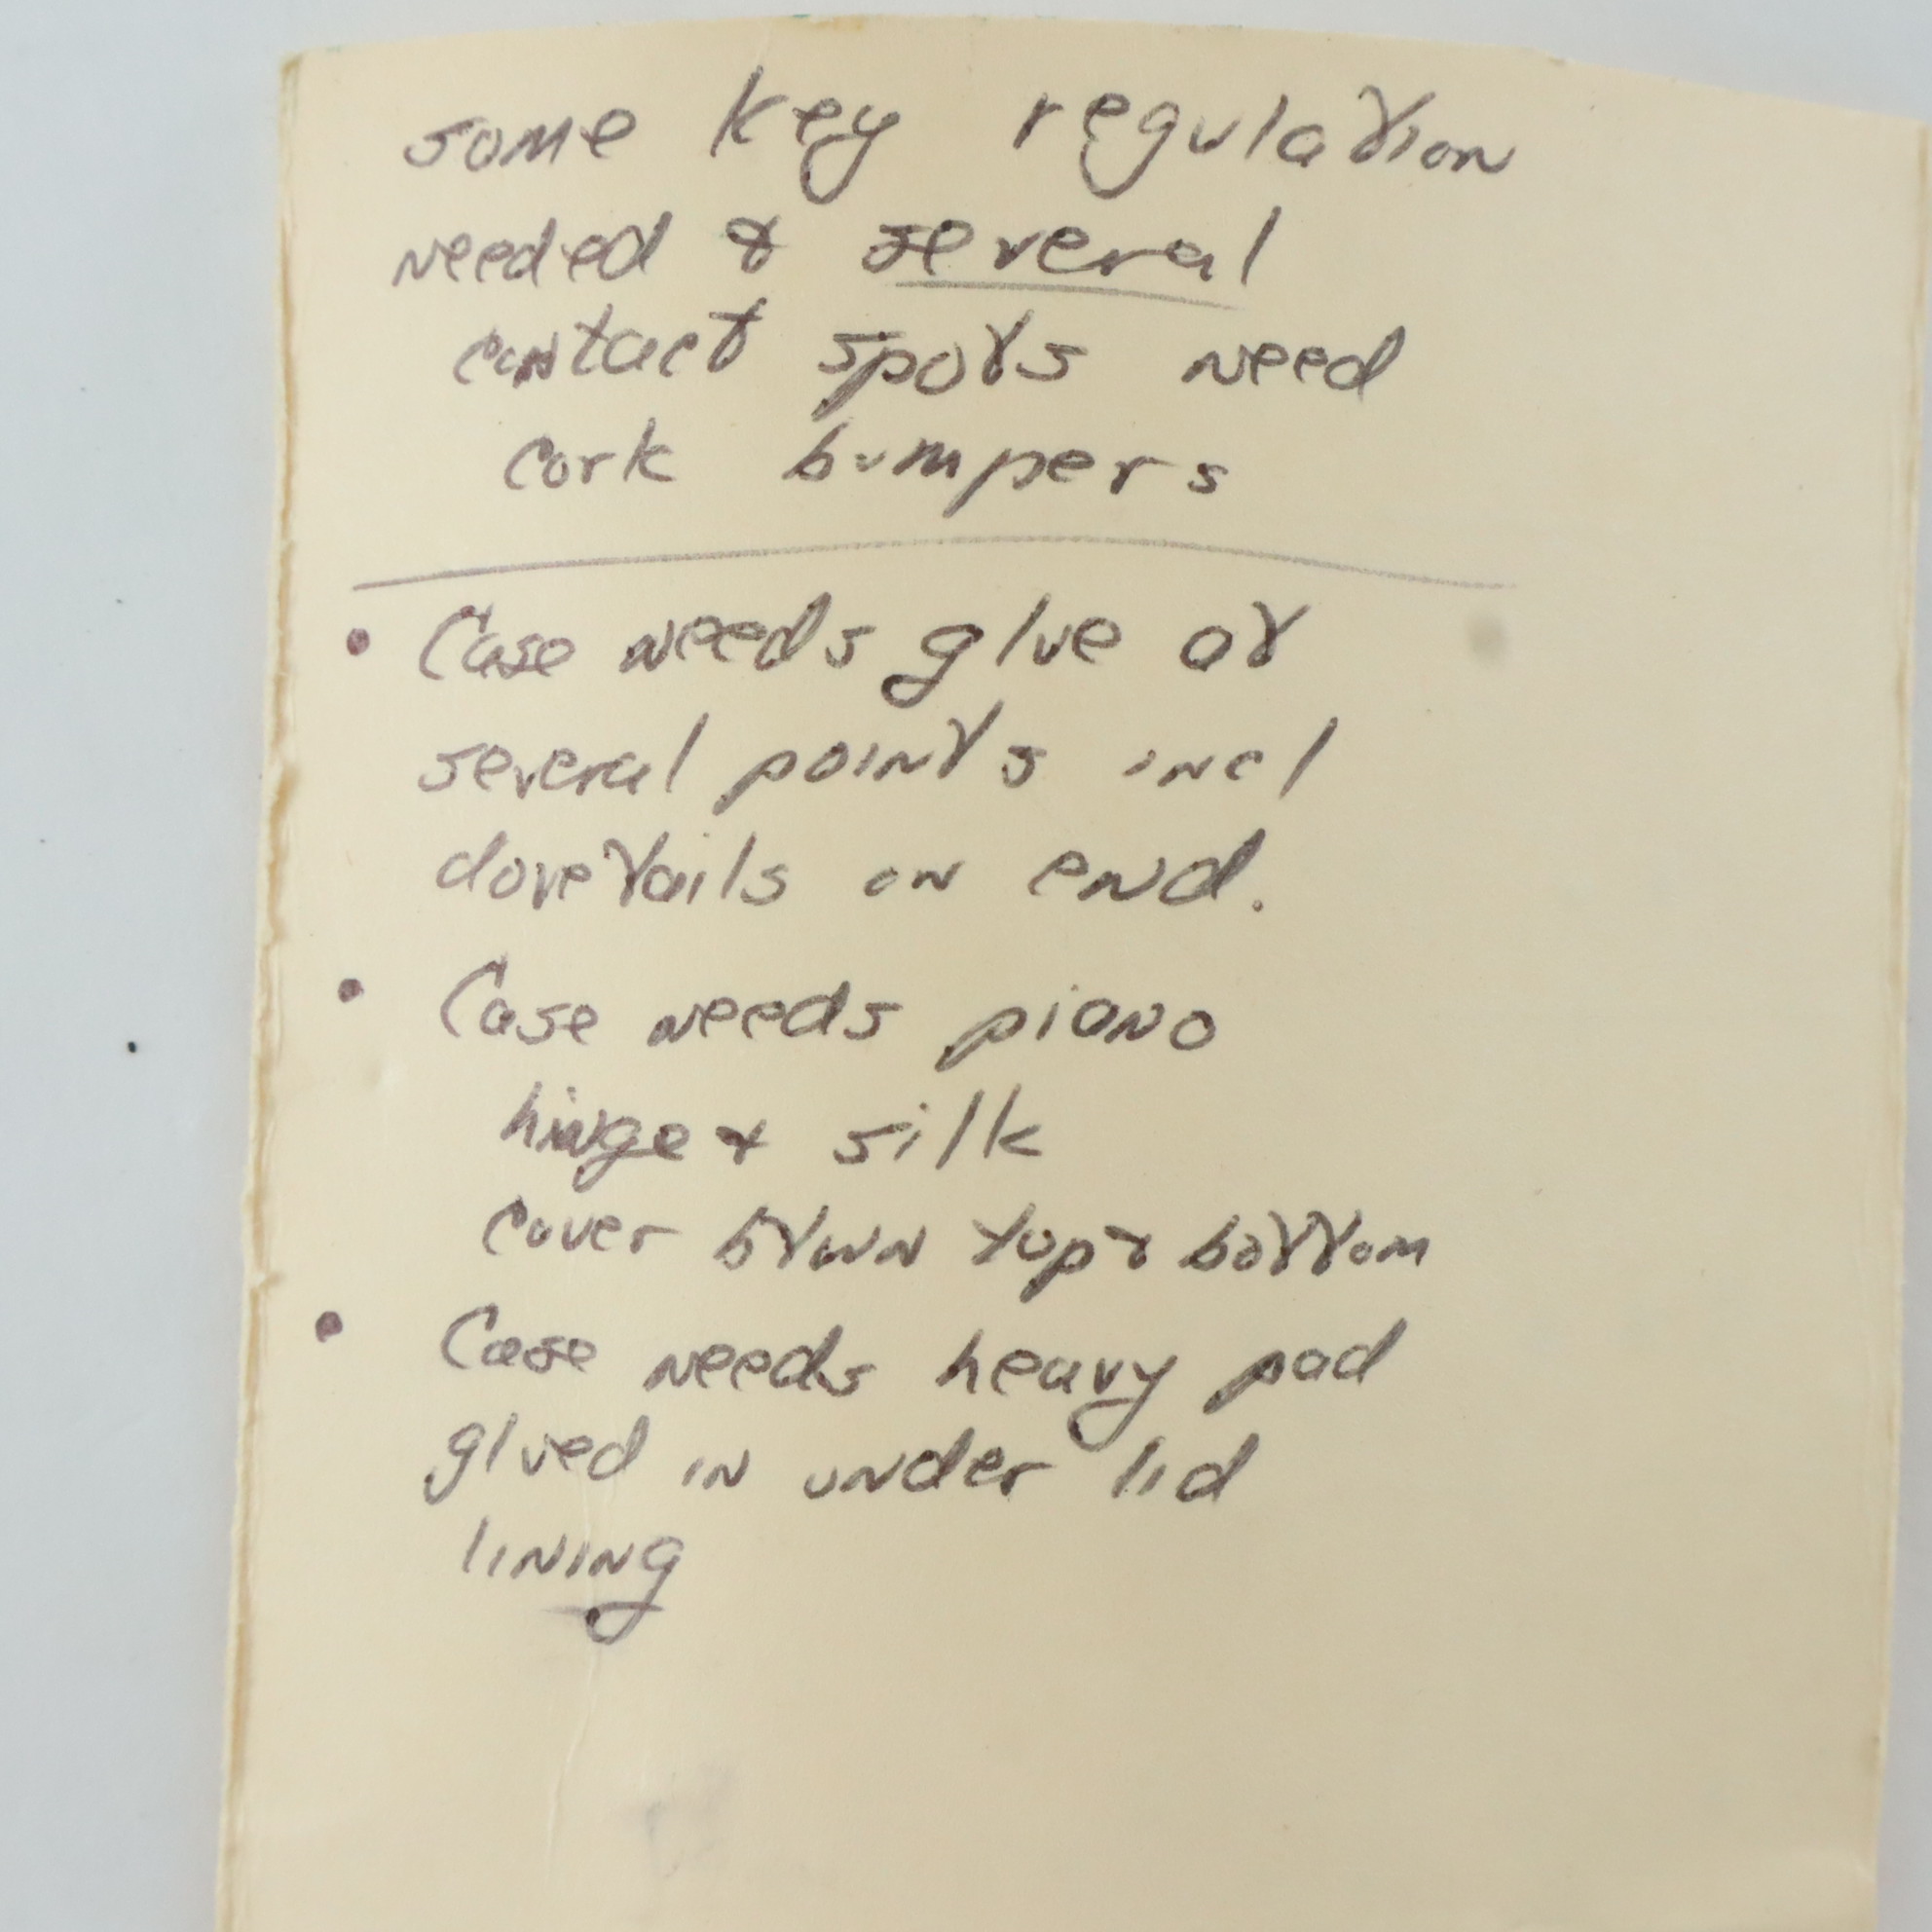 some key regulation
needed & several
contact spots need
cork bumpers
• Case needs glue at
several points incl
dovetails on end.
• Case needs piano
hinge & silk
cover btwn top & bottom
• Case needs heavy pad
glued in under lid
lining